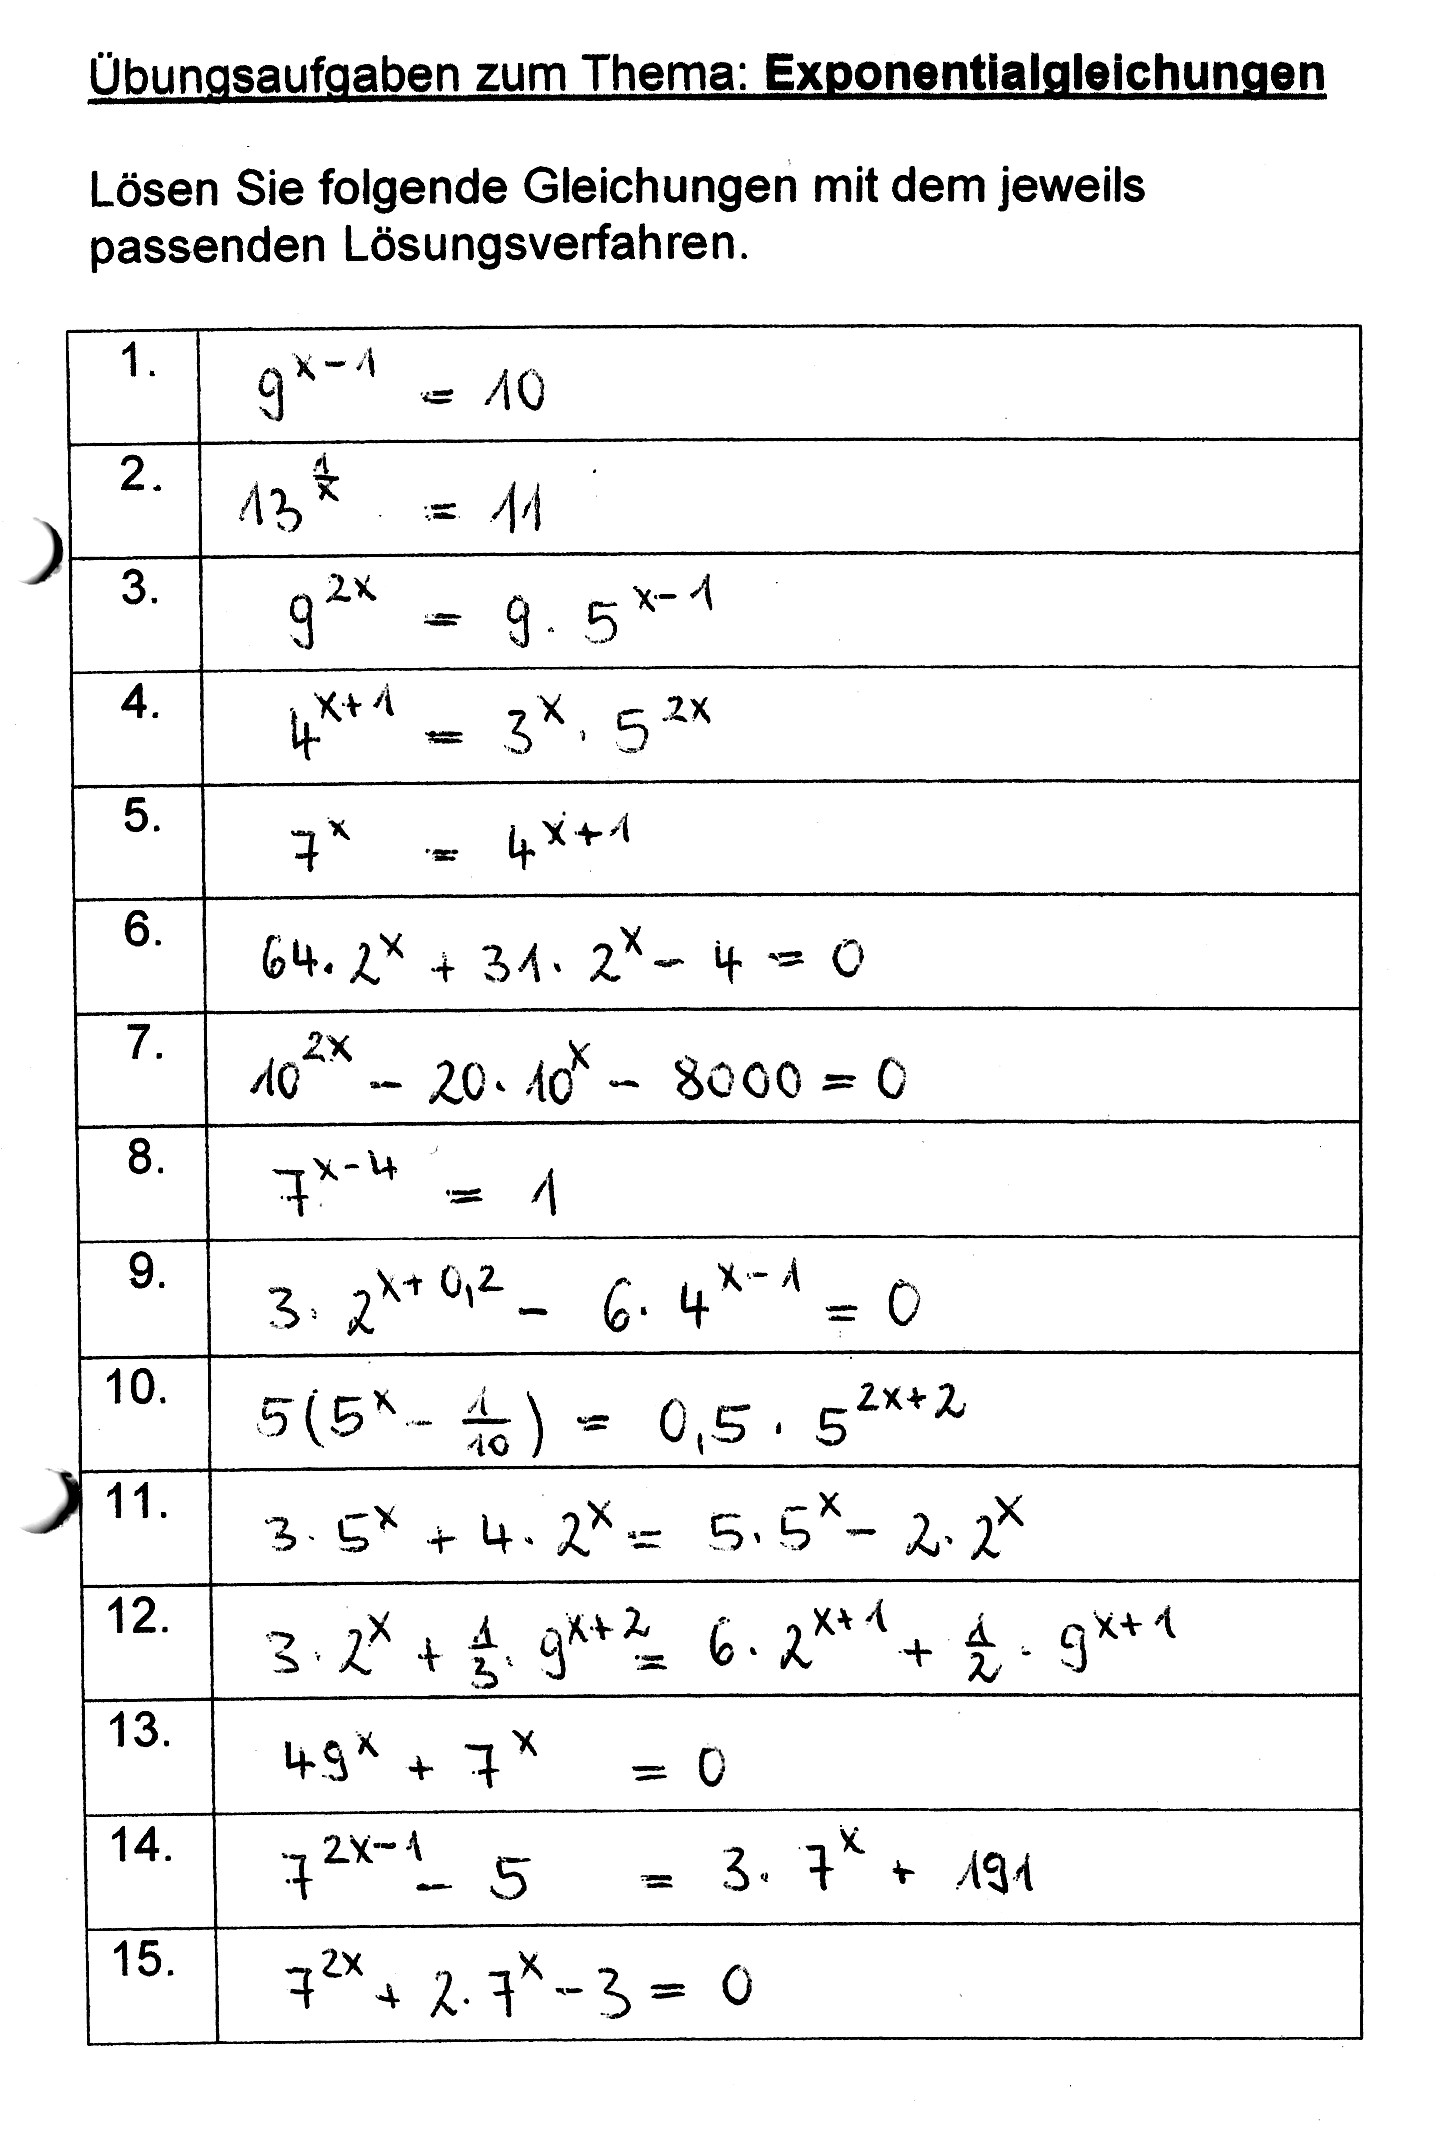 Übungsaufgaben zum Thema: Exponentialgleichungen
Lösen Sie folgende Gleichungen mit dem jeweils
passenden Lösungsverfahren.
1. 9^(x-1) = 10
2. 13^(1/x) = 11
3. 9^(2x) = 9 · 5^(x-1)
4. 4^(x+1) = 3^x · 5^(2x)
5. 7^x = 4^(x+1)
6. 64 · 2^x + 31 · 2^x - 4 = 0
7. 10^(2x) - 20 · 10^x - 8000 = 0
8. 7^(x-4) = 1
9. 3 · 2^(x+0,2) - 6 · 4^(x-1) = 0
10. 5(5^x - 1/10) = 0,5 · 5^(2x+2)
11. 3 · 5^x + 4 · 2^x = 5 · 5^x - 2 · 2^x
12. 3 · 2^x + 1/3 · 9^(x+2) = 6 · 2^(x+1) + 1/2 · 9^(x+1)
13. 49^x + 7^x = 0
14. 7^(2x-1) - 5 = 3 · 7^x + 191
15. 7^(2x) + 2 · 7^x - 3 = 0